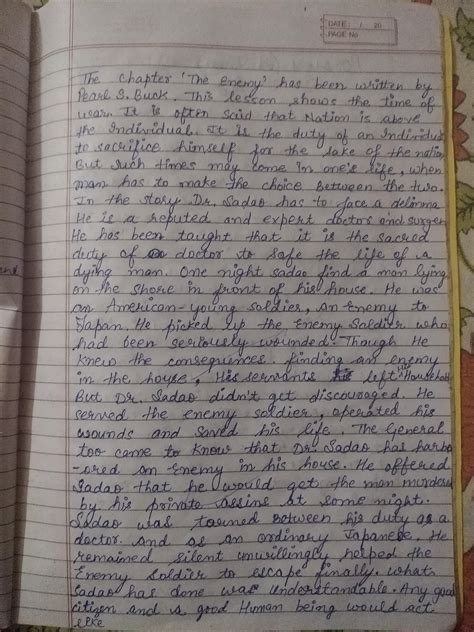 DATE: / 20
PAGE No
The chapter 'The Enemy' has been written by
Pearl S. Buck. This lesson shows the time of
war. It is often said that Nation is above
the Individual. It is the duty of an Individual
to sacrifice himself for the sake of the nation
But such times may come in one's life, when
man has to make the choice between the two.
In the story Dr. Sadao has to face a delimma
He is a reputed and expert doctor and surgen
He has been taught that it is the sacred
duty of doctor to safe the life of a
dying man. One night sadao find a man lying
on the shore in front of his house. He was
an American-young soldier, an enemy to
Japan. He picked up the Enemy soldier who
had been seriously wounded. Though He
knew the consequences. finding an enemy
in the house, His servants left Household
But Dr. Sadao didn't get discouraged. He
served the enemy soldier, operated his
wounds and saved his life. The General
too came to know that Dr. Sadao has harbo
-ored an Enemy in his house. He offered
Sadao that he would get the man murdered
by his private assins at some night.
Sadao was torned between his duty as a
doctor. and as an ordinary Japanese. He
remained silent unwillingly helped the
Enemy Soldier to escape finally. what
Sadao has done was understandable. Any good
citizen and a good Human being would act
like